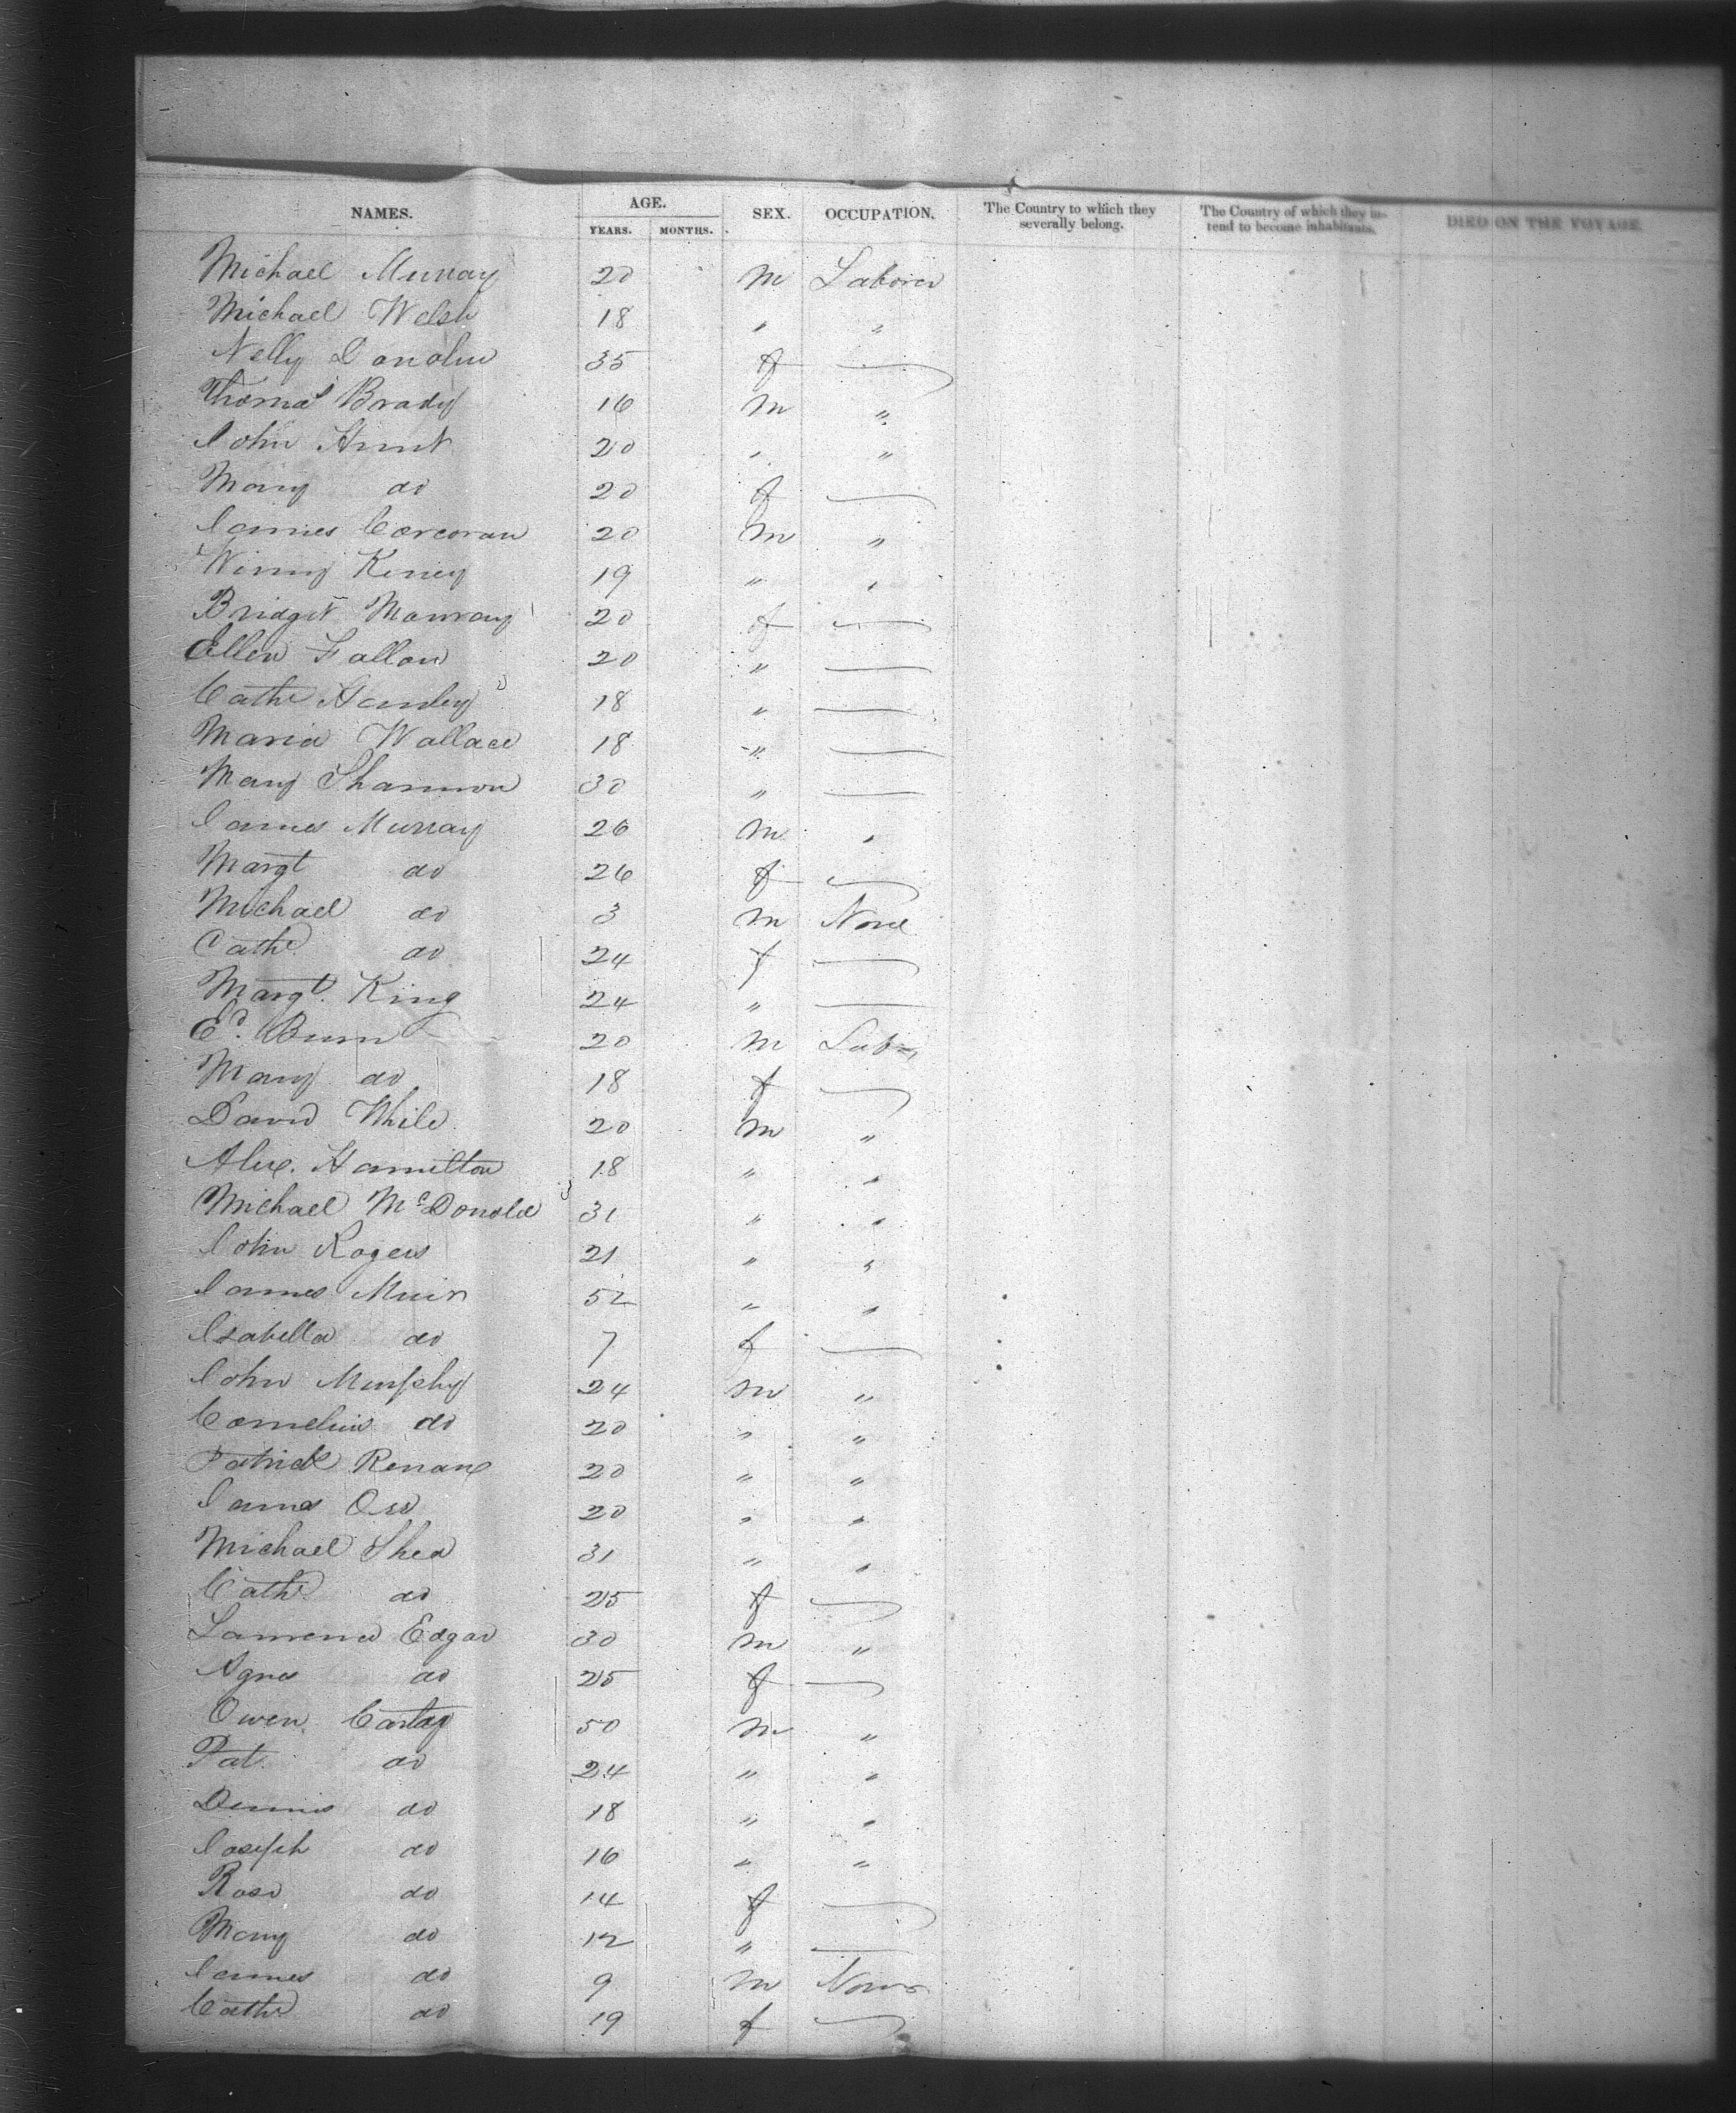 NAMES. AGE. SEX. OCCUPATION. The Country to which they severally belong. The Country of which they intend to become inhabitants. DIED ON THE VOYAGE.
YEARS. MONTHS.
Michael Murray 20 m Laborer
Michael Welsh 18 " "
Nelly Donohu 35 f —
Thomas Brady 16 m "
John Hunt 20 " "
Mary do 20 f —
James Corcoran 20 m "
Winny Keney 19 " "
Bridget Mowray 20 f —
Ellen Fallon 20 " —
Cathe Hanley 18 " —
Maria Wallace 18 " —
Mary Shannon 30 " —
James Murray 26 m "
Margt do 26 f —
Michael do 3 m None
Cathe do 24 f —
Margt. King 24 " —
Ed. Burn 20 m Labr
Mary do 18 f —
David While 20 m "
Alex. Hamilton 18 " "
Michael McDonald 31 " "
John Rogers 21 " "
James Muir 52 " "
Isabella do 7 f —
John Murphy 24 m "
Cornelius do 20 " "
Patrick 20 " "
James 20 " "
Michael Shea 31 " "
Cathe do 25 f —
Edgar 30 m "
Agnes do 25 f —
Owen Cartay 50 m "
Pat. do 24 " "
Dennis do 18 " "
Joseph do 16 " "
Rose do 14 f —
Mary do 12 " —
James do 9 m None
Cathe do 19 f —